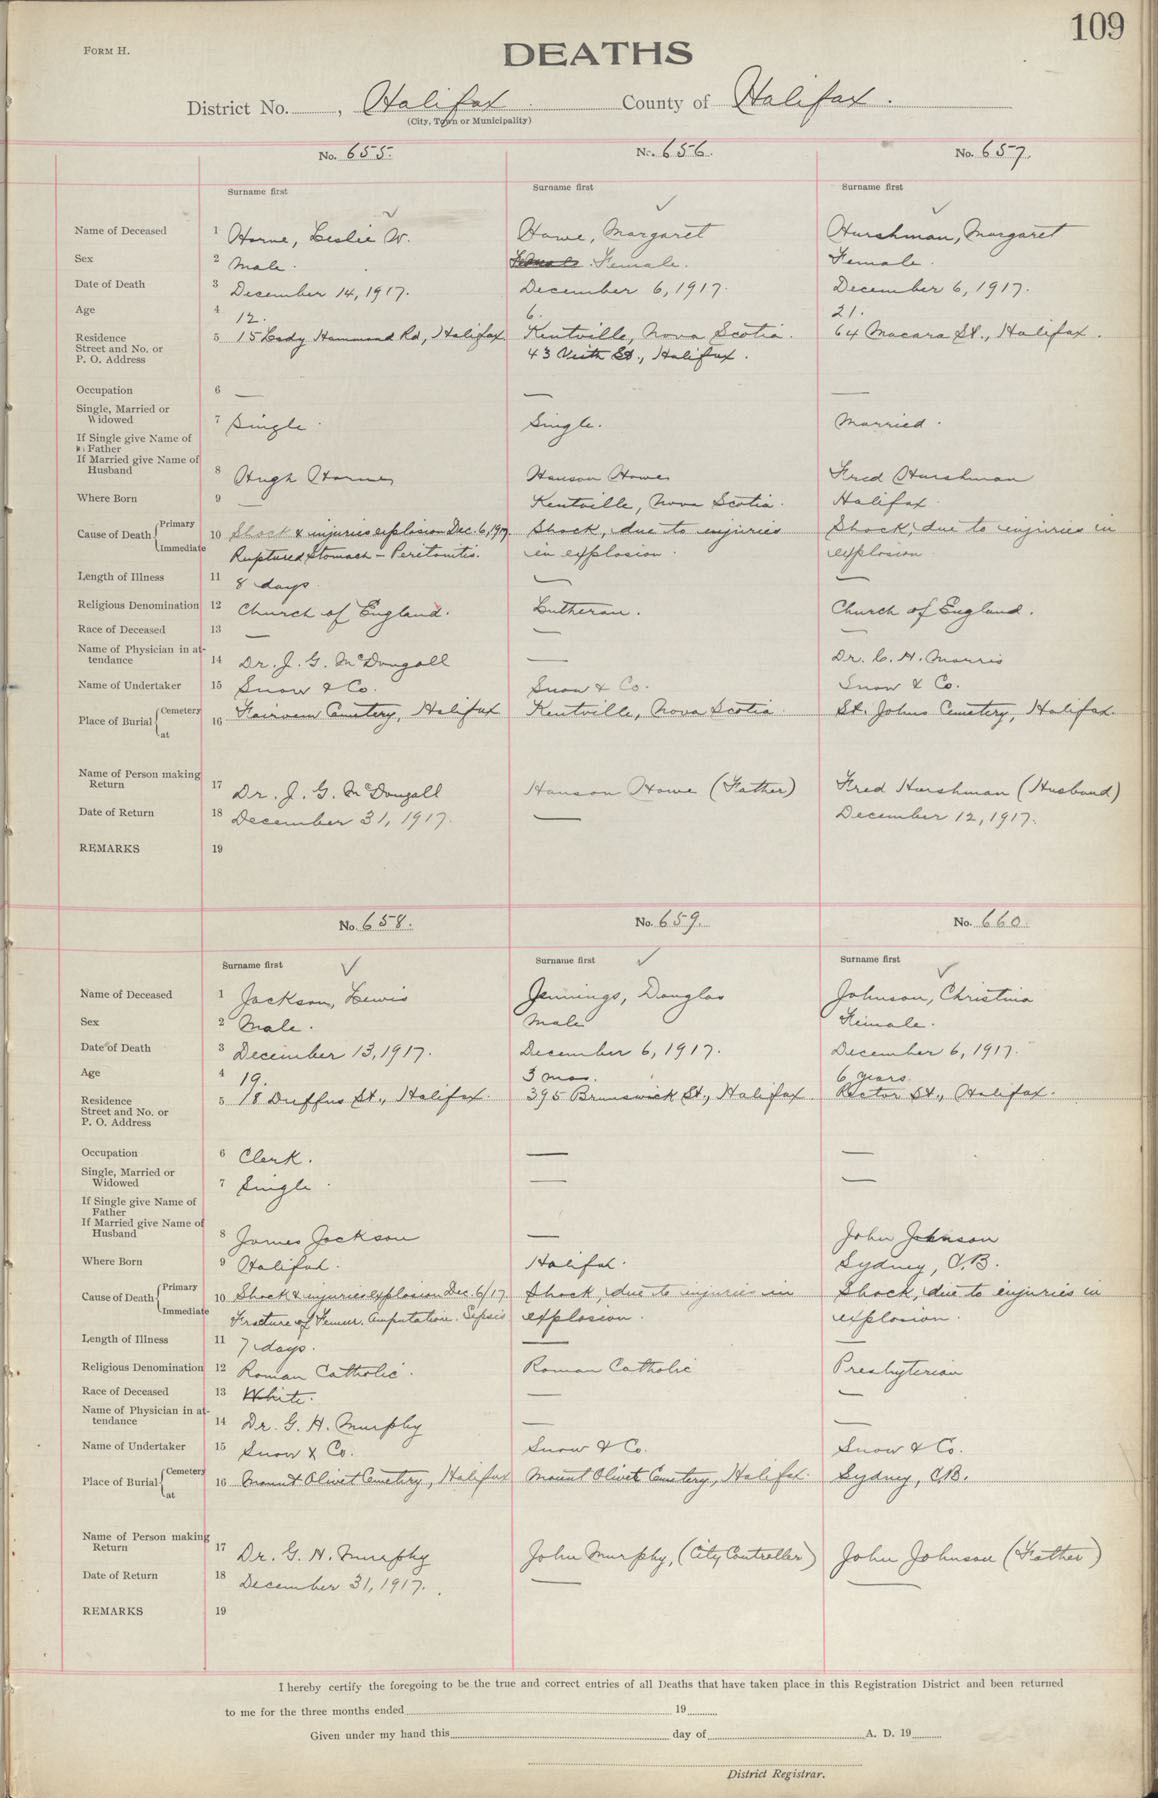 109
FORM H.
DEATHS
District No. , Halifax County of Halifax.
(City, Town or Municipality)
No. 655. No. 656. No. 657.
Surname first Surname first Surname first
Name of Deceased 1 Horne, Leslie W. Howe, Margaret Hurshman, Margaret
Sex 2 Male. Female. Female.
Date of Death 3 December 14, 1917. December 6, 1917. December 6, 1917.
Age 4 12. 6. 21.
Residence 5 15 Lady Hammond Rd, Halifax Kentville, Nova Scotia. 64 Macara St., Halifax.
Street and No. or
P. O. Address 43 Veith St., Halifax.
Occupation 6 — — —
Single, Married or
Widowed 7 Single. Single. Married.
If Single give Name of
Father
If Married give Name of
Husband 8 Hugh Horne Hanson Howe Fred Hurshman
Where Born 9 — Kentville, Nova Scotia. Halifax
Cause of Death Primary 10 Shock & injuries explosion Dec. 6, 1917. Shock, due to injuries Shock, due to injuries in
Immediate Ruptured Stomach - Peritonitis. in explosion. explosion
Length of Illness 11 8 days. — —
Religious Denomination 12 Church of England. Lutheran. Church of England.
Race of Deceased 13 — — —
Name of Physician in at-
tendance 14 Dr. J. G. McDougall — Dr. C. H. Morris
Name of Undertaker 15 Snow & Co. Snow & Co. Snow & Co.
Place of Burial Cemetery at 16 Fairview Cemetery, Halifax Kentville, Nova Scotia St. Johns Cemetery, Halifax.
Name of Person making
Return 17 Dr. J. G. McDougall Hanson Howe (Father) Fred Hurshman (Husband)
Date of Return 18 December 31, 1917. — December 12, 1917.
REMARKS 19
No. 658. No. 659. No. 660.
Surname first Surname first Surname first
Name of Deceased 1 Jackson, Lewis Jennings, Douglas Johnson, Christina
Sex 2 Male. Male Female.
Date of Death 3 December 13, 1917. December 6, 1917. December 6, 1917.
Age 4 19. 3 mos. 6 years.
Residence 5 18 Duffus St., Halifax. 395 Brunswick St., Halifax Rector St., Halifax.
Street and No. or
P. O. Address
Occupation 6 Clerk. — —
Single, Married or
Widowed 7 Single. — —
If Single give Name of
Father
If Married give Name of
Husband 8 James Jackson — John Johnson
Where Born 9 Halifax. Halifax. Sydney, C.B.
Cause of Death Primary 10 Shock & injuries explosion Dec. 6/17 Shock, due to injuries in Shock, due to injuries in
Immediate Fracture of Femur. Amputation. Sepsis explosion. explosion.
Length of Illness 11 7 days. — —
Religious Denomination 12 Roman Catholic. Roman Catholic Presbyterian
Race of Deceased 13 White. — —
Name of Physician in at-
tendance 14 Dr. G. H. Murphy — —
Name of Undertaker 15 Snow & Co. Snow & Co. Snow & Co.
Place of Burial Cemetery at 16 Mount Olivet Cemetery, Halifax Mount Olivet Cemetery, Halifax. Sydney, C.B.
Name of Person making
Return 17 Dr. G. H. Murphy John Murphy, (City Controller) John Johnson (Father)
Date of Return 18 December 31, 1917. — —
REMARKS 19
I hereby certify the foregoing to be the true and correct entries of all Deaths that have taken place in this Registration District and been returned
to me for the three months ended 19
Given under my hand this day of A. D. 19
District Registrar.